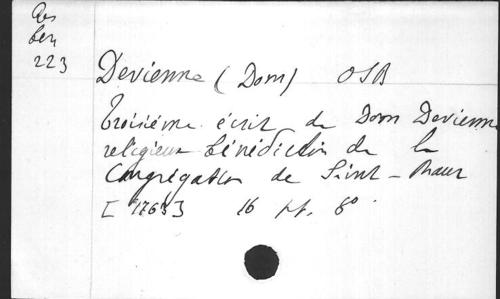 Res
Ben
223
Devienne (Dom) OSB
Troisième écrit de Dom Devienne
religieux bénédictin de la
Congrégation de Saint-Maur
[1765] 16 pp. 8°